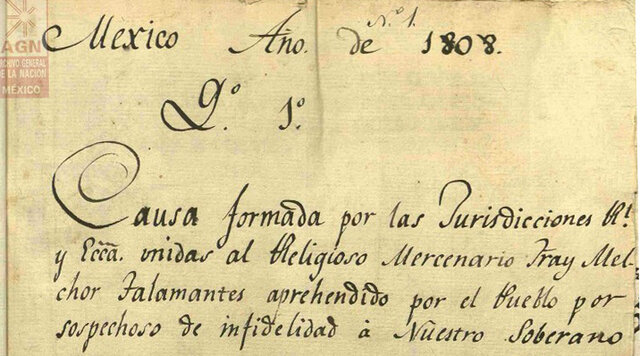 AGN
ARCHIVO GENERAL
DE LA NACION
MÉXICO
N.º 1.
Mexico Año. de 1808.
Q.º 1.º
Causa formada por las Jurisdicciones Rl.
y Eccā. unidas al Religioso Mercenario Fray Mel-
chor Talamantes aprehendido por el Pueblo por
sospechoso de infidelidad â Nũestro Soberano